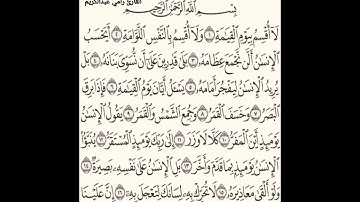 القارئ رامي عبدالكريم
بِسْمِ ٱللَّهِ ٱلرَّحْمَٰنِ ٱلرَّحِيمِ
لَآ أُقْسِمُ بِيَوْمِ ٱلْقِيَٰمَةِ ١ وَلَآ أُقْسِمُ بِٱلنَّفْسِ ٱللَّوَّامَةِ ٢ أَيَحْسَبُ
ٱلْإِنسَٰنُ أَلَّن نَّجْمَعَ عِظَامَهُۥ ٣ بَلَىٰ قَٰدِرِينَ عَلَىٰٓ أَن نُّسَوِّىَ بَنَانَهُۥ ٤ بَلْ
يُرِيدُ ٱلْإِنسَٰنُ لِيَفْجُرَ أَمَامَهُۥ ٥ يَسْـَٔلُ أَيَّانَ يَوْمُ ٱلْقِيَٰمَةِ ٦ فَإِذَا بَرِقَ
ٱلْبَصَرُ ٧ وَخَسَفَ ٱلْقَمَرُ ٨ وَجُمِعَ ٱلشَّمْسُ وَٱلْقَمَرُ ٩ يَقُولُ ٱلْإِنسَٰنُ
يَوْمَئِذٍ أَيْنَ ٱلْمَفَرُّ ١٠ كَلَّا لَا وَزَرَ ١١ إِلَىٰ رَبِّكَ يَوْمَئِذٍ ٱلْمُسْتَقَرُّ ١٢ يُنَبَّؤُا۟
ٱلْإِنسَٰنُ يَوْمَئِذٍۭ بِمَا قَدَّمَ وَأَخَّرَ ١٣ بَلِ ٱلْإِنسَٰنُ عَلَىٰ نَفْسِهِۦ بَصِيرَةٌ ١٤
وَلَوْ أَلْقَىٰ مَعَاذِيرَهُۥ ١٥ لَا تُحَرِّكْ بِهِۦ لِسَانَكَ لِتَعْجَلَ بِهِۦٓ ١٦ إِنَّ عَلَيْنَا